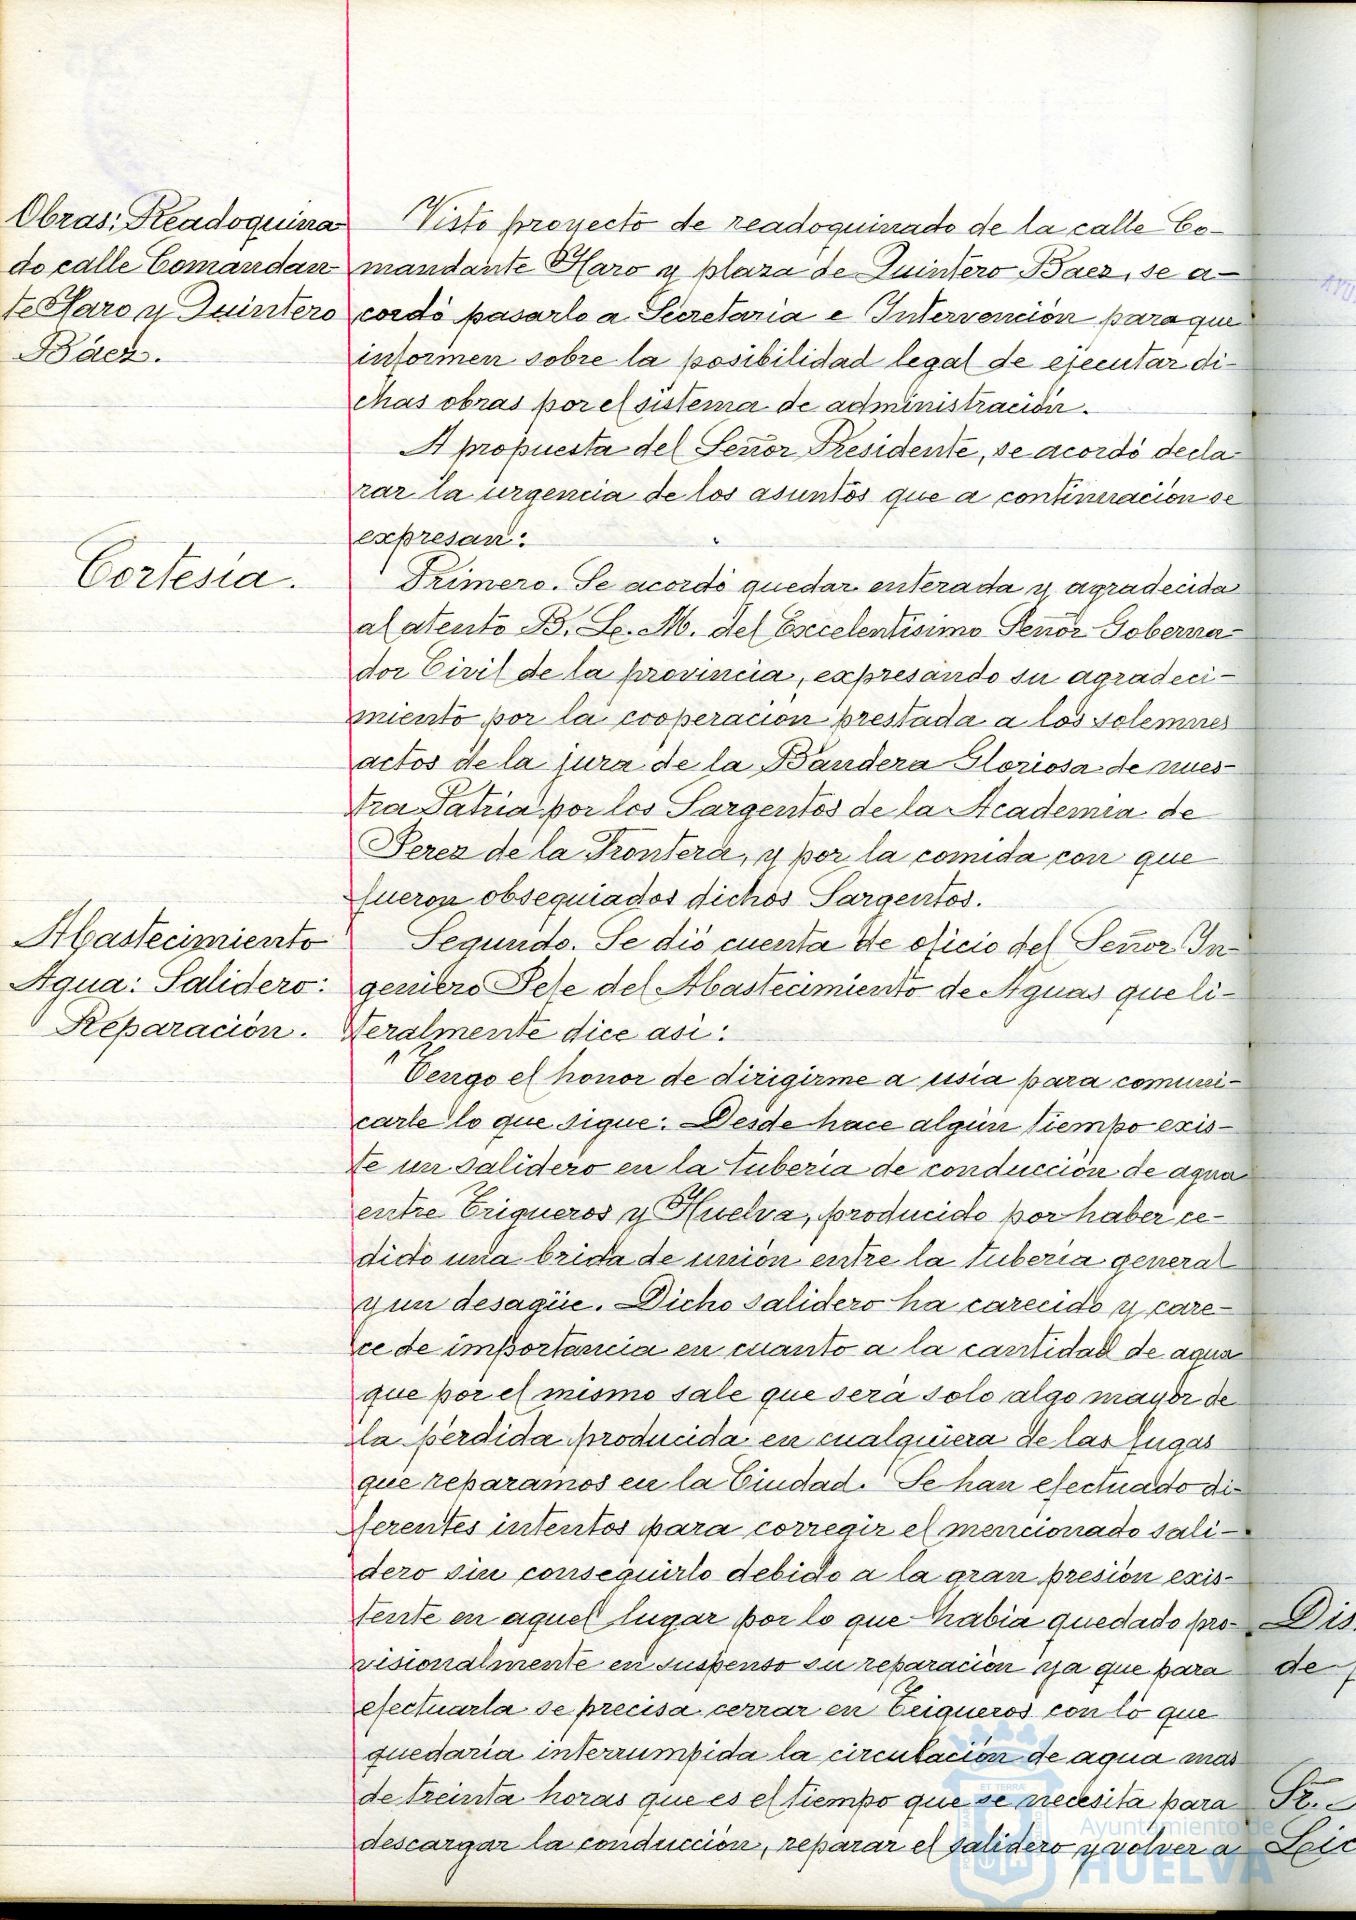 Obras: Readoquina-
do calle Comandan-
te Haro y Quintero
Báez.
Visto proyecto de readoquinado de la calle Co-
mandante Haro y plaza de Quintero Baez, se a-
cordó pasarlo a Secretaria e Intervención para que
informen sobre la posibilidad legal de ejecutar di-
chas obras por el sistema de administración.
A propuesta del Señor Presidente, se acordó decla-
rar la urgencia de los asuntos que a continuación se
expresan:
Cortesía.
Primero. Se acordó quedar enterada y agradecida
al atento B. L. M. del Excelentísimo Señor Goberna-
dor Civil de la provincia, expresando su agradeci-
miento por la cooperación prestada a los solemnes
actos de la jura de la Bandera Gloriosa de nues-
tra Patria por los Sargentos de la Academia de
Jerez de la Frontera, y por la comida con que
fueron obsequiados dichos Sargentos.
Abastecimiento
Agua: Salidero:
Reparación.
Segundo. Se dió cuenta de oficio del Señor In-
geniero Jefe del Abastecimiento de Aguas que li-
teralmente dice asi:
"Tengo el honor de dirigirme a usía para comuni-
carle lo que sigue: Desde hace algún tiempo exis-
te un salidero en la tubería de conducción de agua
entre Trigueros y Huelva, producido por haber ce-
dido una brida de unión entre la tubería general
y un desagüe. Dicho salidero ha carecido y care-
ce de importancia en cuanto a la cantidad de agua
que por el mismo sale que será solo algo mayor de
la pérdida producida en cualquiera de las fugas
que reparamos en la Ciudad. Se han efectuado di-
ferentes intentos para corregir el mencionado sali-
dero sin conseguirlo debido a la gran presión exis-
tente en aquel lugar por lo que había quedado pro-
visionalmente en suspenso su reparación ya que para
efectuarla se precisa cerrar en Trigueros con lo que
quedaría interrumpida la circulación de agua mas
de treinta horas que es el tiempo que se necesita para
descargar la conducción, reparar el salidero y volver a
Dis
de
Sr.
Lic
Ayuntamiento de
HUELVA